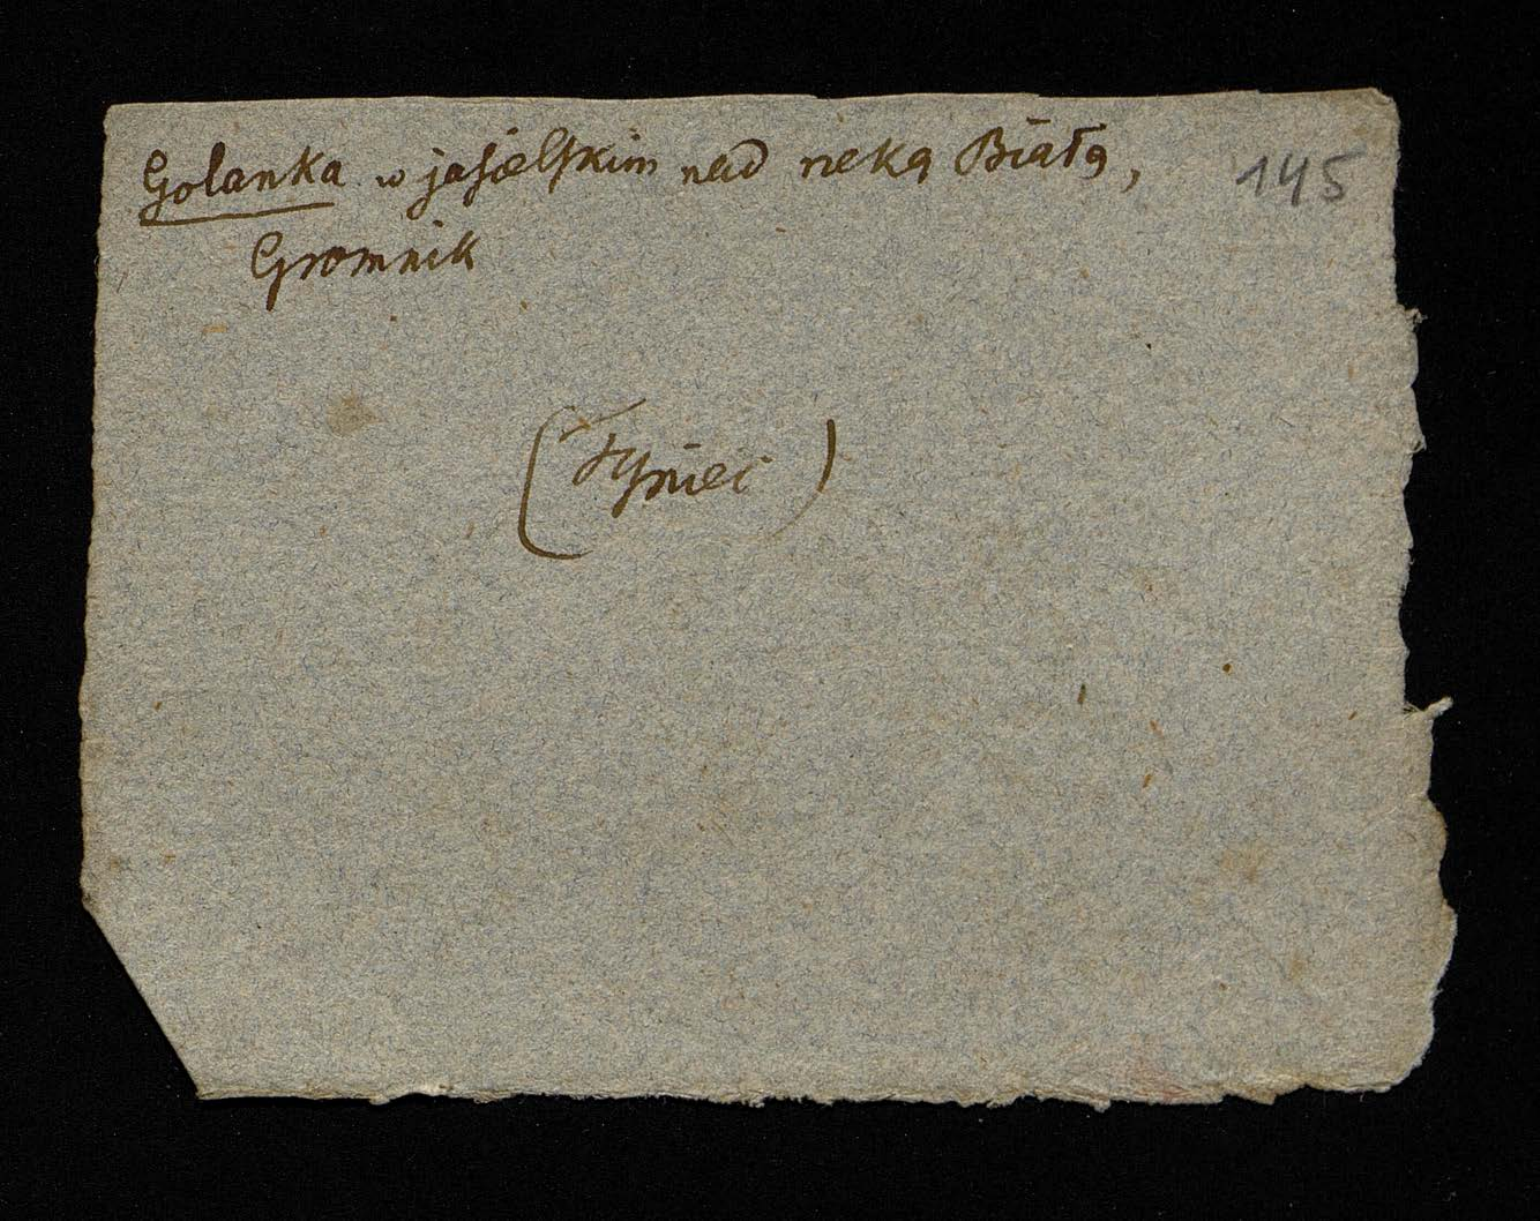 Golanka w jasielskim nad rzeką Białą, 145
Gromnik
(Tyniec)